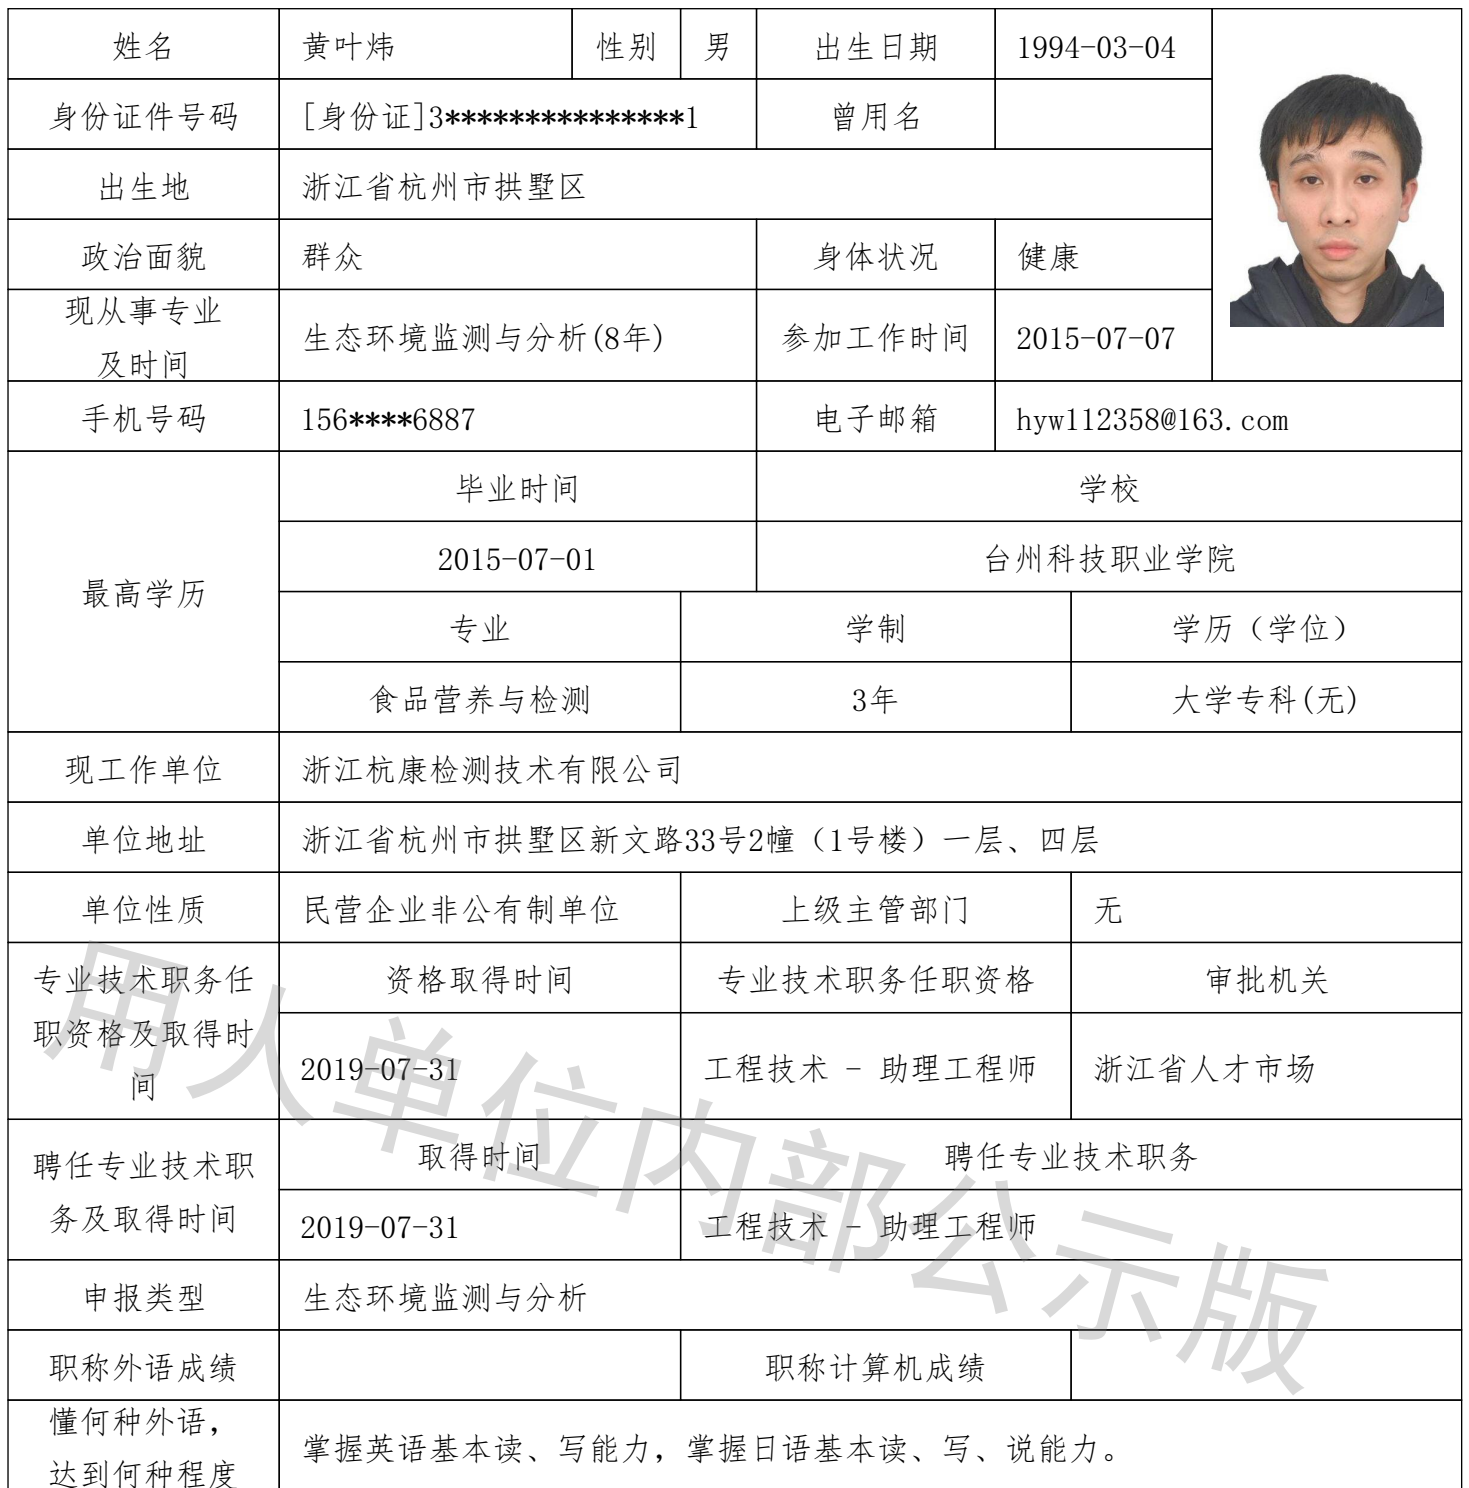 姓名 黄叶炜 性别 男 出生日期 1994-03-04
身份证件号码 [身份证]3***************1 曾用名
出生地 浙江省杭州市拱墅区
政治面貌 群众 身体状况 健康
现从事专业
及时间
生态环境监测与分析(8年) 参加工作时间 2015-07-07
手机号码 156****6887 电子邮箱 hyw112358@163.com
最高学历
毕业时间 学校
2015-07-01 台州科技职业学院
专业 学制 学历（学位）
食品营养与检测 3年 大学专科(无)
现工作单位 浙江杭康检测技术有限公司
单位地址 浙江省杭州市拱墅区新文路33号2幢（1号楼）一层、四层
单位性质 民营企业非公有制单位 上级主管部门 无
专业技术职务任
职资格及取得时
间
资格取得时间 专业技术职务任职资格 审批机关
2019-07-31 工程技术 - 助理工程师 浙江省人才市场
聘任专业技术职
务及取得时间
取得时间 聘任专业技术职务
2019-07-31 工程技术 - 助理工程师
申报类型 生态环境监测与分析
职称外语成绩 职称计算机成绩
懂何种外语，
达到何种程度
掌握英语基本读、写能力，掌握日语基本读、写、说能力。
用人单位内部公示版